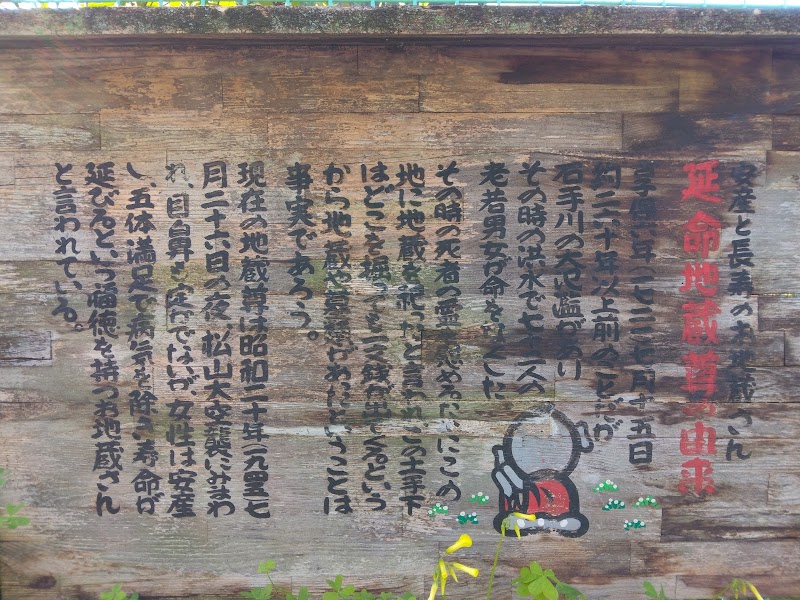 安産と長寿のお地蔵さん
延命地蔵尊の由来
享保六年(一七二一)七月十五日
約二八十年以上前のことだが
石手川の大氾濫があり
その時の洪水で七十二人の
老若男女が命を亡くした。
その時の死者の霊を慰めるためにこの
地に地蔵を祀ったと言われ、この土手下
はどこを掘っても一文銭が出てくるという
から地蔵や墓類があったということは
事実であろう。
現在の地蔵尊は昭和二十年(一九四五)七
月二十六日の夜、松山大空襲にみまわ
れ、目鼻も定かでないが、女性は安産
し、五体満足で病気を除き寿命が
延びるという福徳を持つお地蔵さん
と言われている。